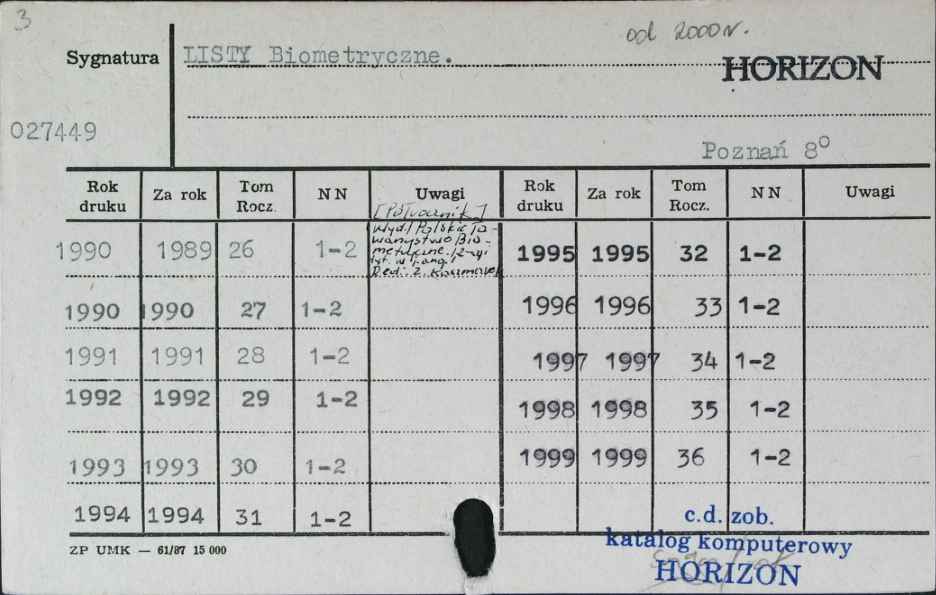 3
od 2000 r.
Sygnatura LISTY Biometryczne.
HORIZON
027449
Poznań 8°
Rok druku Za rok Tom Rocz. NN Uwagi Rok druku Za rok Tom Rocz. NN Uwagi
[Półrocznik]
Wyd.: Polskie To-
warzystwo Bio-
metryczne.
1990 1989 26 1-2 1995 1995 32 1-2
1990 1990 27 1-2 1996 1996 33 1-2
1991 1991 28 1-2 1997 1997 34 1-2
1992 1992 29 1-2 1998 1998 35 1-2
1993 1993 30 1-2 1999 1999 36 1-2
1994 1994 31 1-2
c.d. zob.
katalog komputerowy
HORIZON
ZP UMK — 61/87 15 000